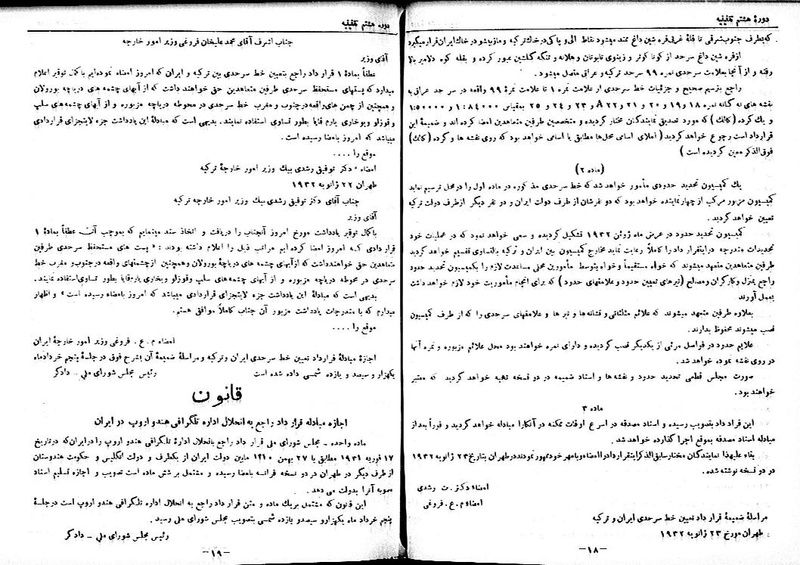 دورهٔ هشتم تقنینیه
که بطرف جنوب شرقی تا قلهٔ غربی قره شین داغ ممتد میشود نقاط الی و یاکی در خاک ترکیه و مازبیشو در خاک ایران قرار میگیرد
از قره شین داغ سرحد از کونا کوتر و زینوی تابوتان وهلانه و تنگه گلشین عبور کرده و بقله کوه دلامپر بالا
رفته و از آنجا بعلامت سرحدی نمره ۹۹ سرحد ترکیه و عراقی متصل میشود.
راجع بترسیم صحیح و جزئیات خط سرحدی از علامت نمره ۱ تا علامت نمره ۹۹ واقعه در سر حد عراقی به
نقشه های نه گانه نمره ۱۸ و ۱۹ و ۲۰ و ۲۱ و ۲۲ و ۲۳ و ۲۴ و ۲۵ بمقیاس ۱:۸۴۰۰۰ و ۱:۵۰۰۰۰
و یك کرده (کالك) که مورد تصدیق نمایندگان مختار گردیده و متخصصین طرفین متعاهدین امضا کرده اند و ضمیمهٔ این
قرارداد است رجوع خواهد گردید ( املای اسامی محل‌ها مطابق با اسامی خواهد بود که روی نقشه ها و کرده (کالك)
فوق الذکر معین گردیده است )
(ماده ۲)
یك کمیسیون تحدید حدودی مأمور خواهد شد که خط سرحدی مذ کوره در ماده اول را در محل ترسیم نماید
کمیسیون مزبور مرکب از چهار نماینده خواهد بود که دو نفرشان از طرف دولت ایران و دو نفر دیگر از طرف دولت ترکیه
تعیین خواهد گردید.
کمیسیون تحدید حدود در عرض ماه ژوئن ۱۹۳۲ تشکیل گردیده و سعی خواهد نمود که در عملیات خود
تحدیدات مندرجه در این قرارداد را کاملاً رعایت نماید مخارج کمیسیون بین ایران و ترکیه بالتساوی تقسیم خواهد گردید
طرفین متعاهدین متعهد میشوند که خواه مستقیماً و خواه بتوسط مأمورین محلی مساعدت لازم را بکمیسیون تحدید حدود
راجع بمنزل وکارگران ومصالح (تیرهای تعیین حدود و علامتهای حدود) که برای انجام مأموریت خود لازم خواهد داشت
بعمل آورند
بعلاوه طرفین متعهد میشوند که علائم مثلثاتی و نشانه‌ها و تیر ها و علامتهای سرحدی را که از طرف کمیسیون
نصب میشوند محفوظ بدارند.
علایم حدود در فواصل مرئی از یکدیگر نصب گردیده و دارای نمره خواهند بود محل علائم مزبوره و نمره آنها
در روی نقشه نموده خواهد شد.
صورت مجلس قطعی تحدید حدود و نقشه‌ها و اسناد ضمیمه در دو نسخه تهیه خواهد گردید که معتبر
خواهند بود.
ماده ۳
این قرار داد بتصویب رسیده و اسناد مصدقه در اسرع اوقات ممکنه در آنکارا مبادله خواهد گردید و فوراً بعد از
مبادله اسناد مصدقه بموقع اجرا گذارده خواهد شد.
بناء علیهذا نمایندگان مختار سابق الذکر این قرارداد را امضاء و بامهر خود ممهور نمودند در طهران بتاریخ ۲۳ ژانویه ۱۹۳۲
در دو نسخه نوشته شده.
امضاء دکتر. ت رشدی
امضاء م.ع. فروغی
مراسلهٔ ضمیمهٔ قرار داد تعیین خط سرحدی ایران و ترکیه
طهران مورخ ۲۳ ژانویه ۱۹۳۲
-۱۸-
دوره هشتم تقنینیه
جناب اشرف آقای محمد علیخان فروغی وزیر امور خارجه
آقای وزیر
عطفاً بمادهٔ ۱ قرار داد راجع بتعیین خط سرحدی بین ترکیه و ایران که امروز امضاء نموده‌ایم باکمال توقیر اعلام
میدارد که پستهای مستحفظ سرحدی طرفین متعاهدین حق خواهند داشت که از آبهای چشمه های دریاچه بورولان
و همچنین از چمن های واقعه در جنوب و مغرب خط سرحدی در محوطه دریاچه مزبوره و از آبهای چشمه‌های سلپ
و قوزلو وبوخباری یارم قایا بطور تساوی استفاده نمایند. بدیهی است که مبادلهٔ این یادداشت جزء لایتجزای قراردادی
میباشد که امروز بامضا رسیده است.
موقع را ....
امضاء . دکتر توفیق رشدی بیك وزیر امور خارجهٔ ترکیه
طهران ۲۳ ژانویه ۱۹۳۲
جناب آقای دکتر توفیق رشدی بیك وزیر امور خارجه ترکیه
آقای وزیر
باکمال توقیر یادداشت مورخ امروز آنجناب را دریافت و اتخاذ سند مینمایم که بموجب آن عطفاً بمادهٔ ۱
قرار دادی کـه امروز امضا کرده ایم مراتب ذیل را اعلام داشته بودند : « پست های مستحفظ سرحدی طرفین
متعاهدین حق خواهند داشت که از آبهای چشمه های دریاچهٔ بورولان وهمچنین از چمنهای واقعه در جنوب و مغرب خط
سرحدی در محوطه دریاچه مزبوره و از آبهای چشمه‌های سلپ وقوزلو وبخباری یارم قایا بطور تساوی استفاده نمایند.
بدیهی است که مبادلهٔ این یادداشت جزء لایتجزای قراردادی میباشد که امروز بامضاء رسیده است » و اظهار
میدارم که با مندرجات یادداشت مزبور آن جناب کاملاً موافق هستم.
موقع را ....
امضاء م . ع . فروغی وزیر امور خارجهٔ ایران
اجازهٔ مبادلهٔ قرارداد تعیین خط سرحدی ایران و ترکیه و مراسلهٔ ضمیمهٔ آن بشرح فوق در جلسهٔ پنجم خرداد ماه
یکهزار و سیصد و یازده شمسی داده شده است
رئیس مجلس شورای ملی - دادگر
قانون
اجازه مبادله قرار داد راجع به انحلال اداره تلگرافی هند و اروپ در ایران
ماده واحده - مجلس شورای ملی قرار داد راجع بانحلال ادارهٔ تلگرافی هندو اروپ را در ایران که در تاریخ
۱۷ فوریه ۱۹۳۲ مطابق با ۲۷ بهمن ۱۳۱۰ مابین دولت ایران از یکطرف و دولت انگلیس و حکومت هندوستان
از طرف دیگر در طهران در دو نسخه فرانسه بامضا رسیده و مشتمل بر شش ماده است تصویب و اجازه تسلیم اسناد
مصوبه آنرا بدولت می دهد .
این قانون که مشتمل بریك ماده و متن قرار داد راجع به انحلال اداره تلگرافی هندو اروپ است در جلسهٔ
پنجم خرداد ماه یکهزار و سیصد و یازده شمسی بتصویب مجلس شورای ملی رسید .
رئیس مجلس شورای ملی - دادگر
-۱۹-